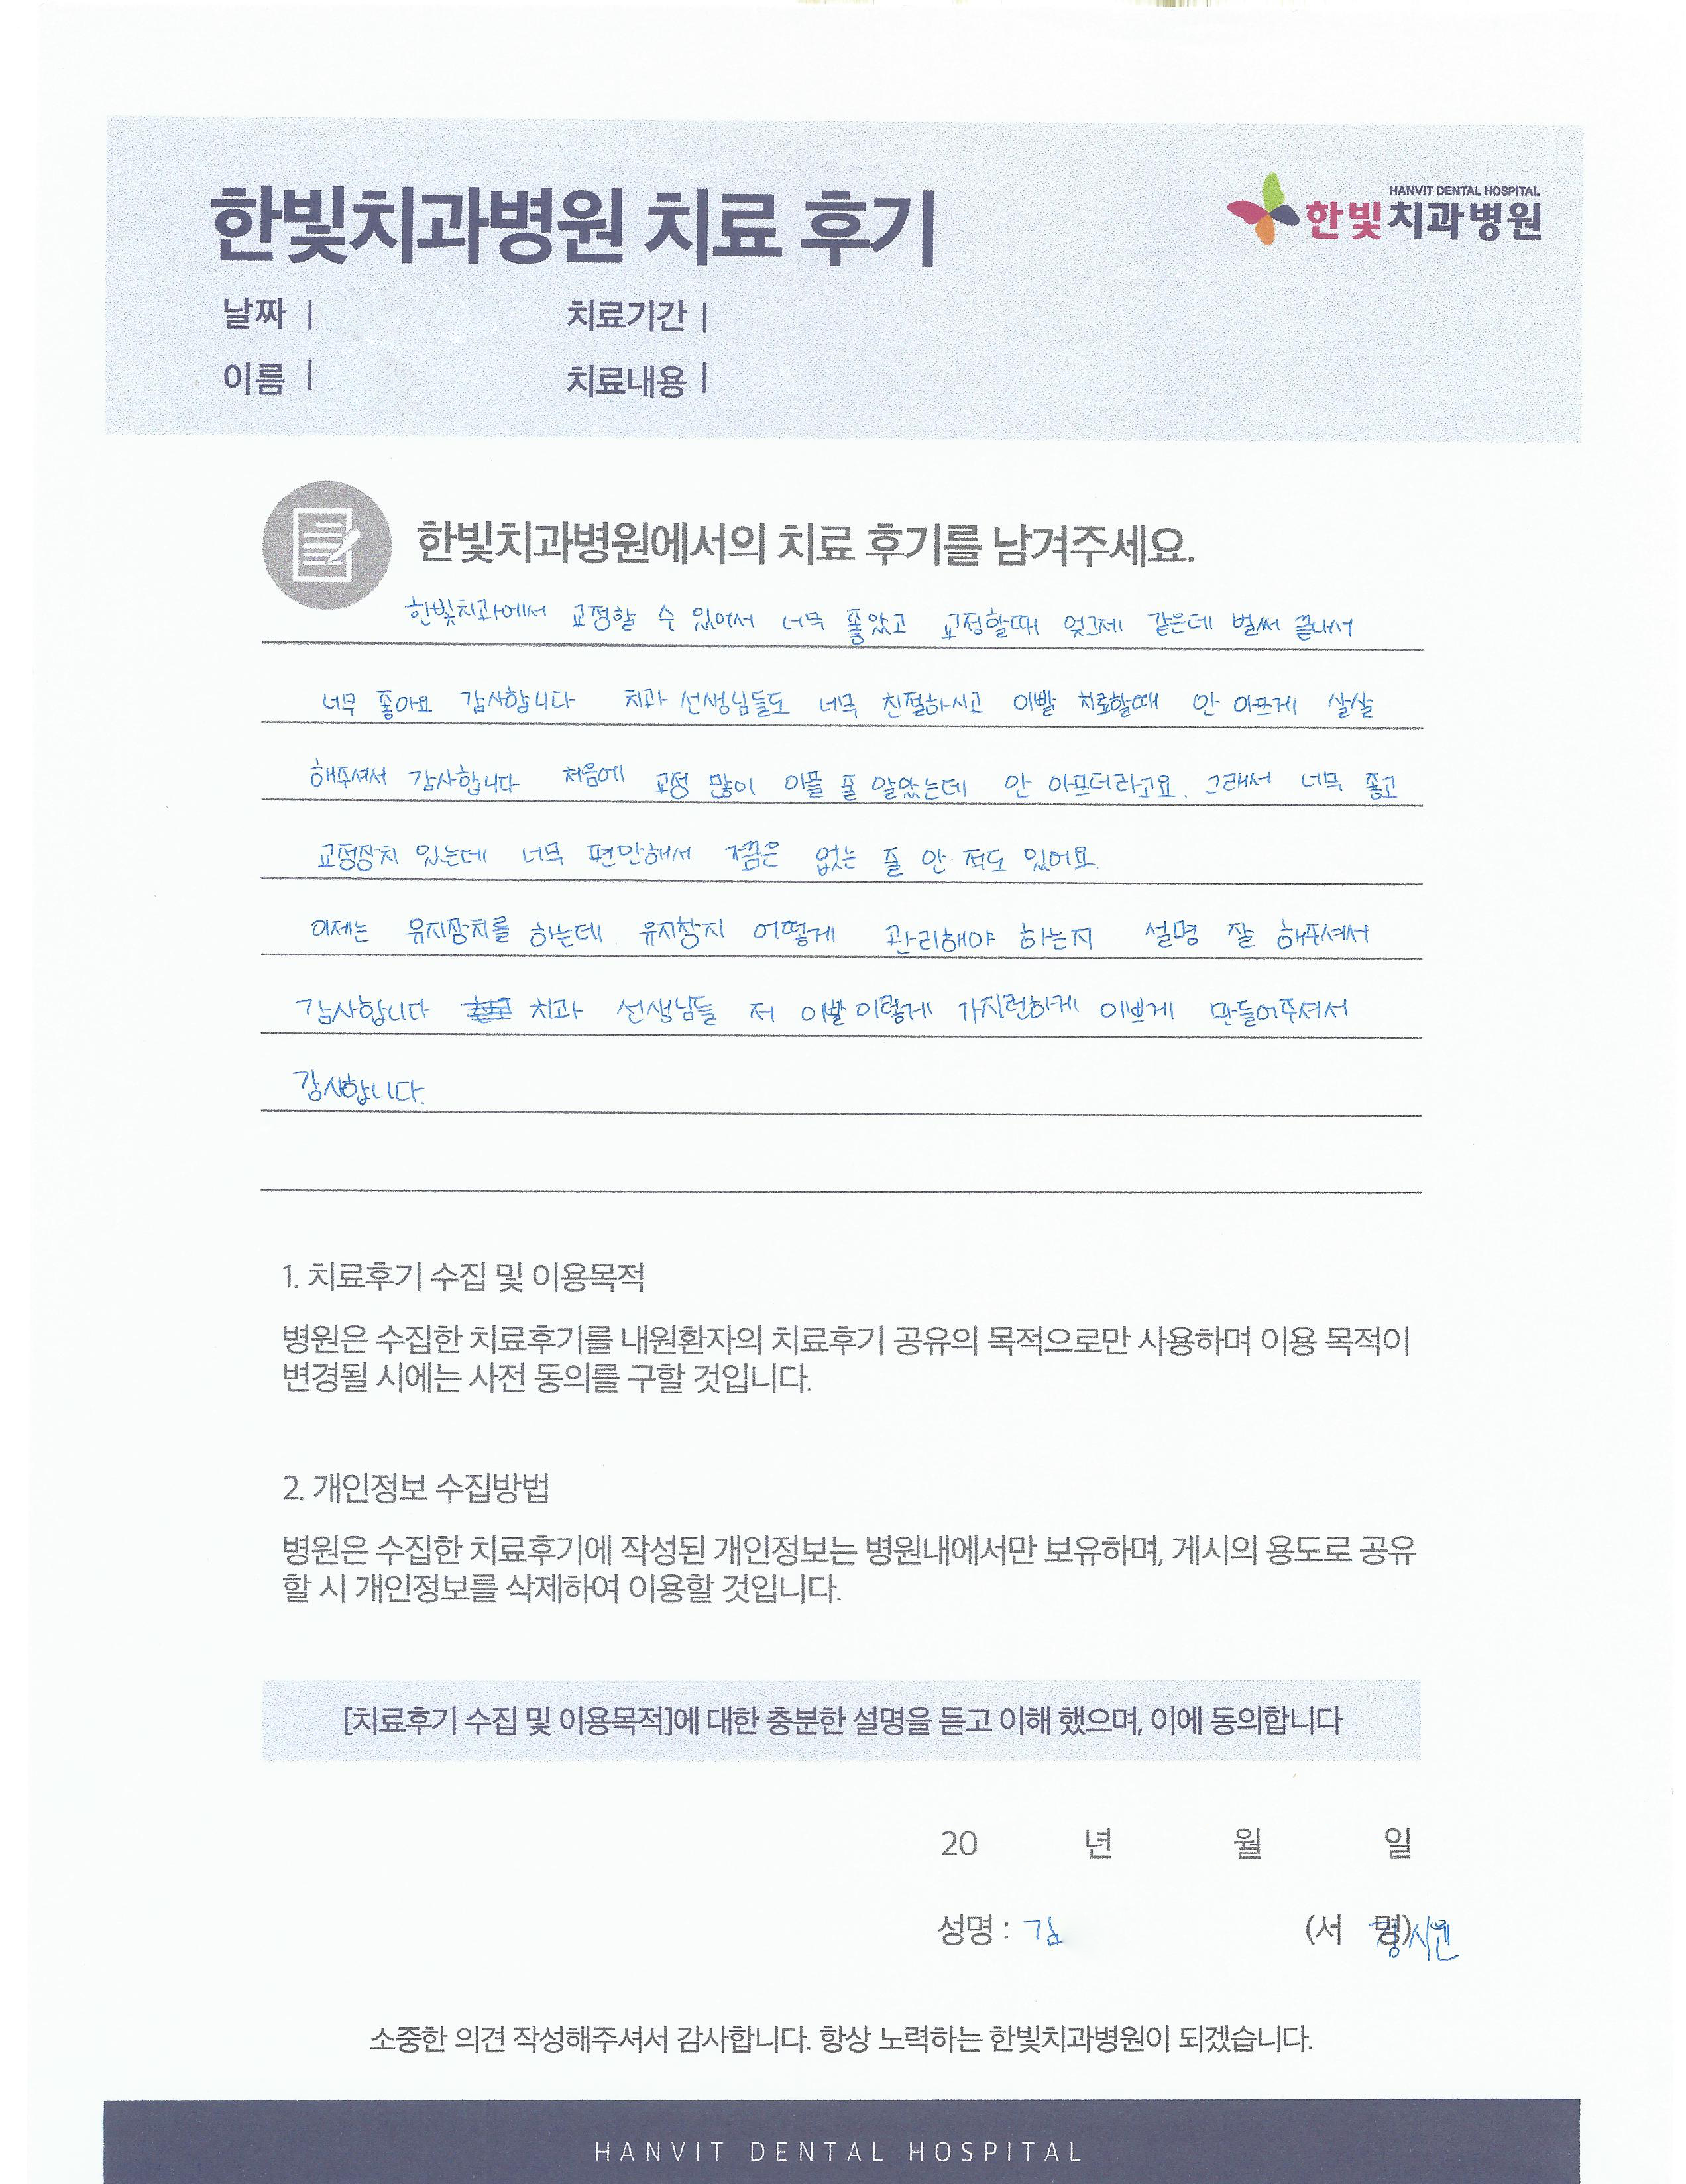 한빛치과병원 치료 후기
HANVIT DENTAL HOSPITAL
한빛치과병원
날짜 |
치료기간 |
이름 |
치료내용 |
한빛치과병원에서의 치료 후기를 남겨주세요.
한빛치과에서 교정할 수 있어서 너무 좋았고 교정할때 엊그제 같은데 벌써 끝내서
너무 좋아요 감사합니다 치과 선생님들도 너무 친절하시고 이빨 치료할때 안 아프게 살살
해주셔서 감사합니다 처음에 교정 많이 아플 줄 알았는데 안 아프더라고요. 그래서 너무 좋고
교정장치 있는데 너무 편안해서 가끔은 없는 줄 안 적도 있어요.
이제는 유지장치를 하는데 유지장치 어떻게 관리해야 하는지 설명 잘 해주셔서
감사합니다 치과 선생님들 저 이빨 이렇게 가지런하게 이쁘게 만들어주셔서
감사합니다.
1. 치료후기 수집 및 이용목적
병원은 수집한 치료후기를 내원환자의 치료후기 공유의 목적으로만 사용하며 이용 목적이
변경될 시에는 사전 동의를 구할 것입니다.
2. 개인정보 수집방법
병원은 수집한 치료후기에 작성된 개인정보는 병원내에서만 보유하며, 게시의 용도로 공유
할 시 개인정보를 삭제하여 이용할 것입니다.
[치료후기 수집 및 이용목적]에 대한 충분한 설명을 듣고 이해 했으며, 이에 동의합니다
20 년 월 일
성명 : 김 (서 명)
소중한 의견 작성해주셔서 감사합니다. 항상 노력하는 한빛치과병원이 되겠습니다.
HANVIT DENTAL HOSPITAL